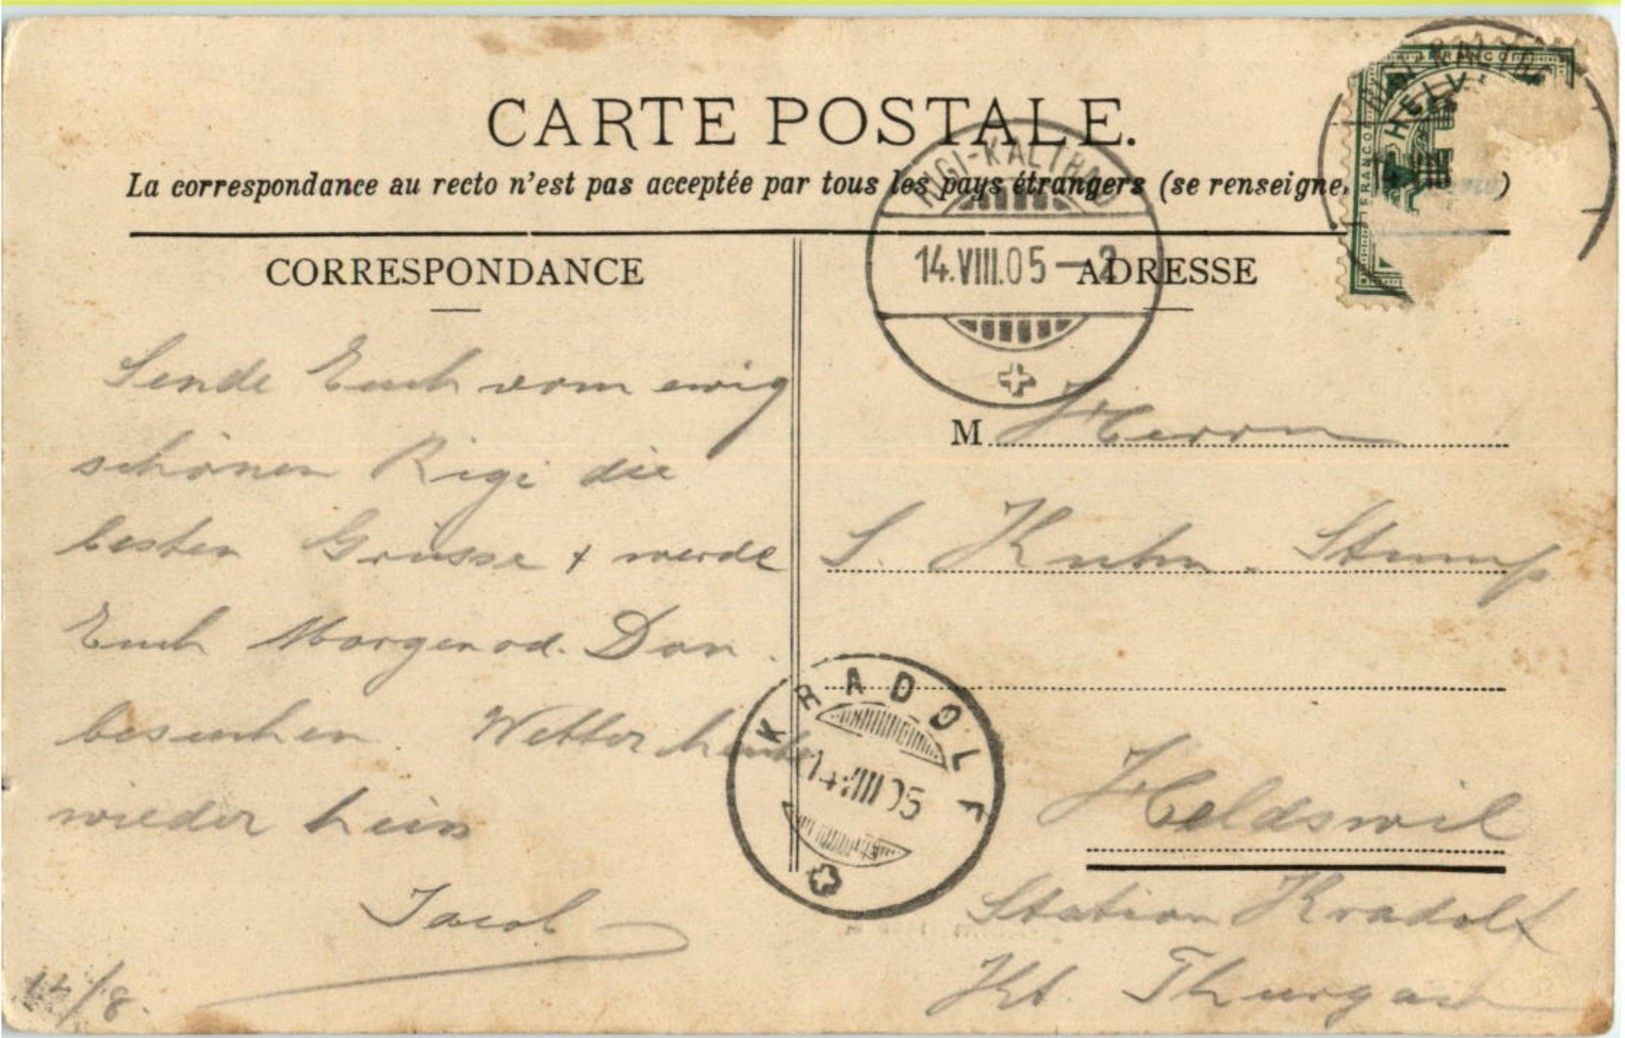 CARTE POSTALE.
La correspondance au recto n'est pas acceptée par tous les pays étrangers (se renseigner
CORRESPONDANCE
ADRESSE
RIGI-KALTBAD
14.VIII.05-2
FRANCO
HELV
FRANCO
Sende Euch vom ewig
schönen Rigi die
besten Grüsse + werde
Euch Morgen od. Don.
besuchen. Wetter heute
wieder
Jacob
M Herrn
S. Kuhn-Stump
KRADOLF
14.VIII.05
Heldswil
Station Kradolf
Kt. Thurgau